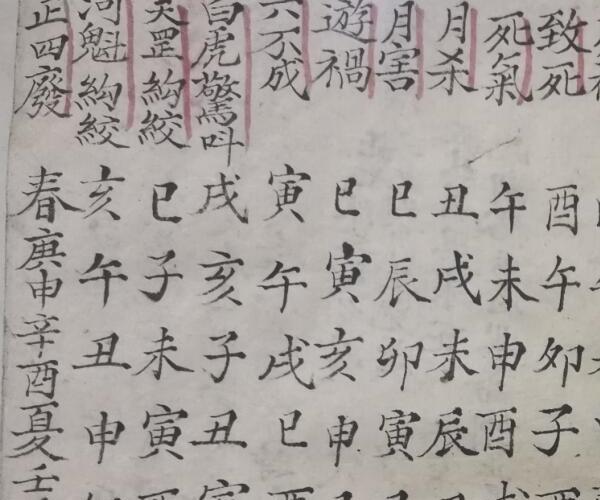 致死酉午卯子
死氣午未申酉
月杀丑戌未辰
月害巳辰卯寅
遊禍巳寅亥申
六不成寅午戌巳
白虎驚呌戌亥子丑寅
天罡絇絞巳子未寅
河魁絇絞亥午丑申
正四廢春庚申辛酉夏壬